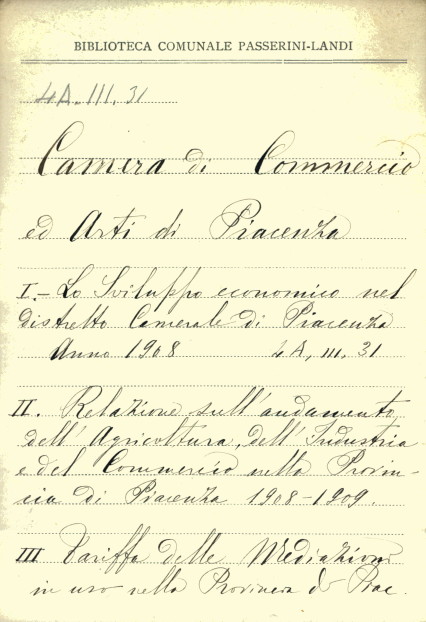 BIBLIOTECA COMUNALE PASSERINI-LANDI
4A. III. 31
Camera di Commercio
ed Arti di Piacenza
I.- Lo Sviluppo economico nel
distretto Camerale di Piacenza
Anno 1908 4A, III. 31
II. Relazione sull'andamento
dell'Agricoltura, dell'Industria
e del Commercio nella Provin-
cia di Piacenza 1908-1909.
III Tariffa delle Mediazioni
in uso nella Provincia di Piac.